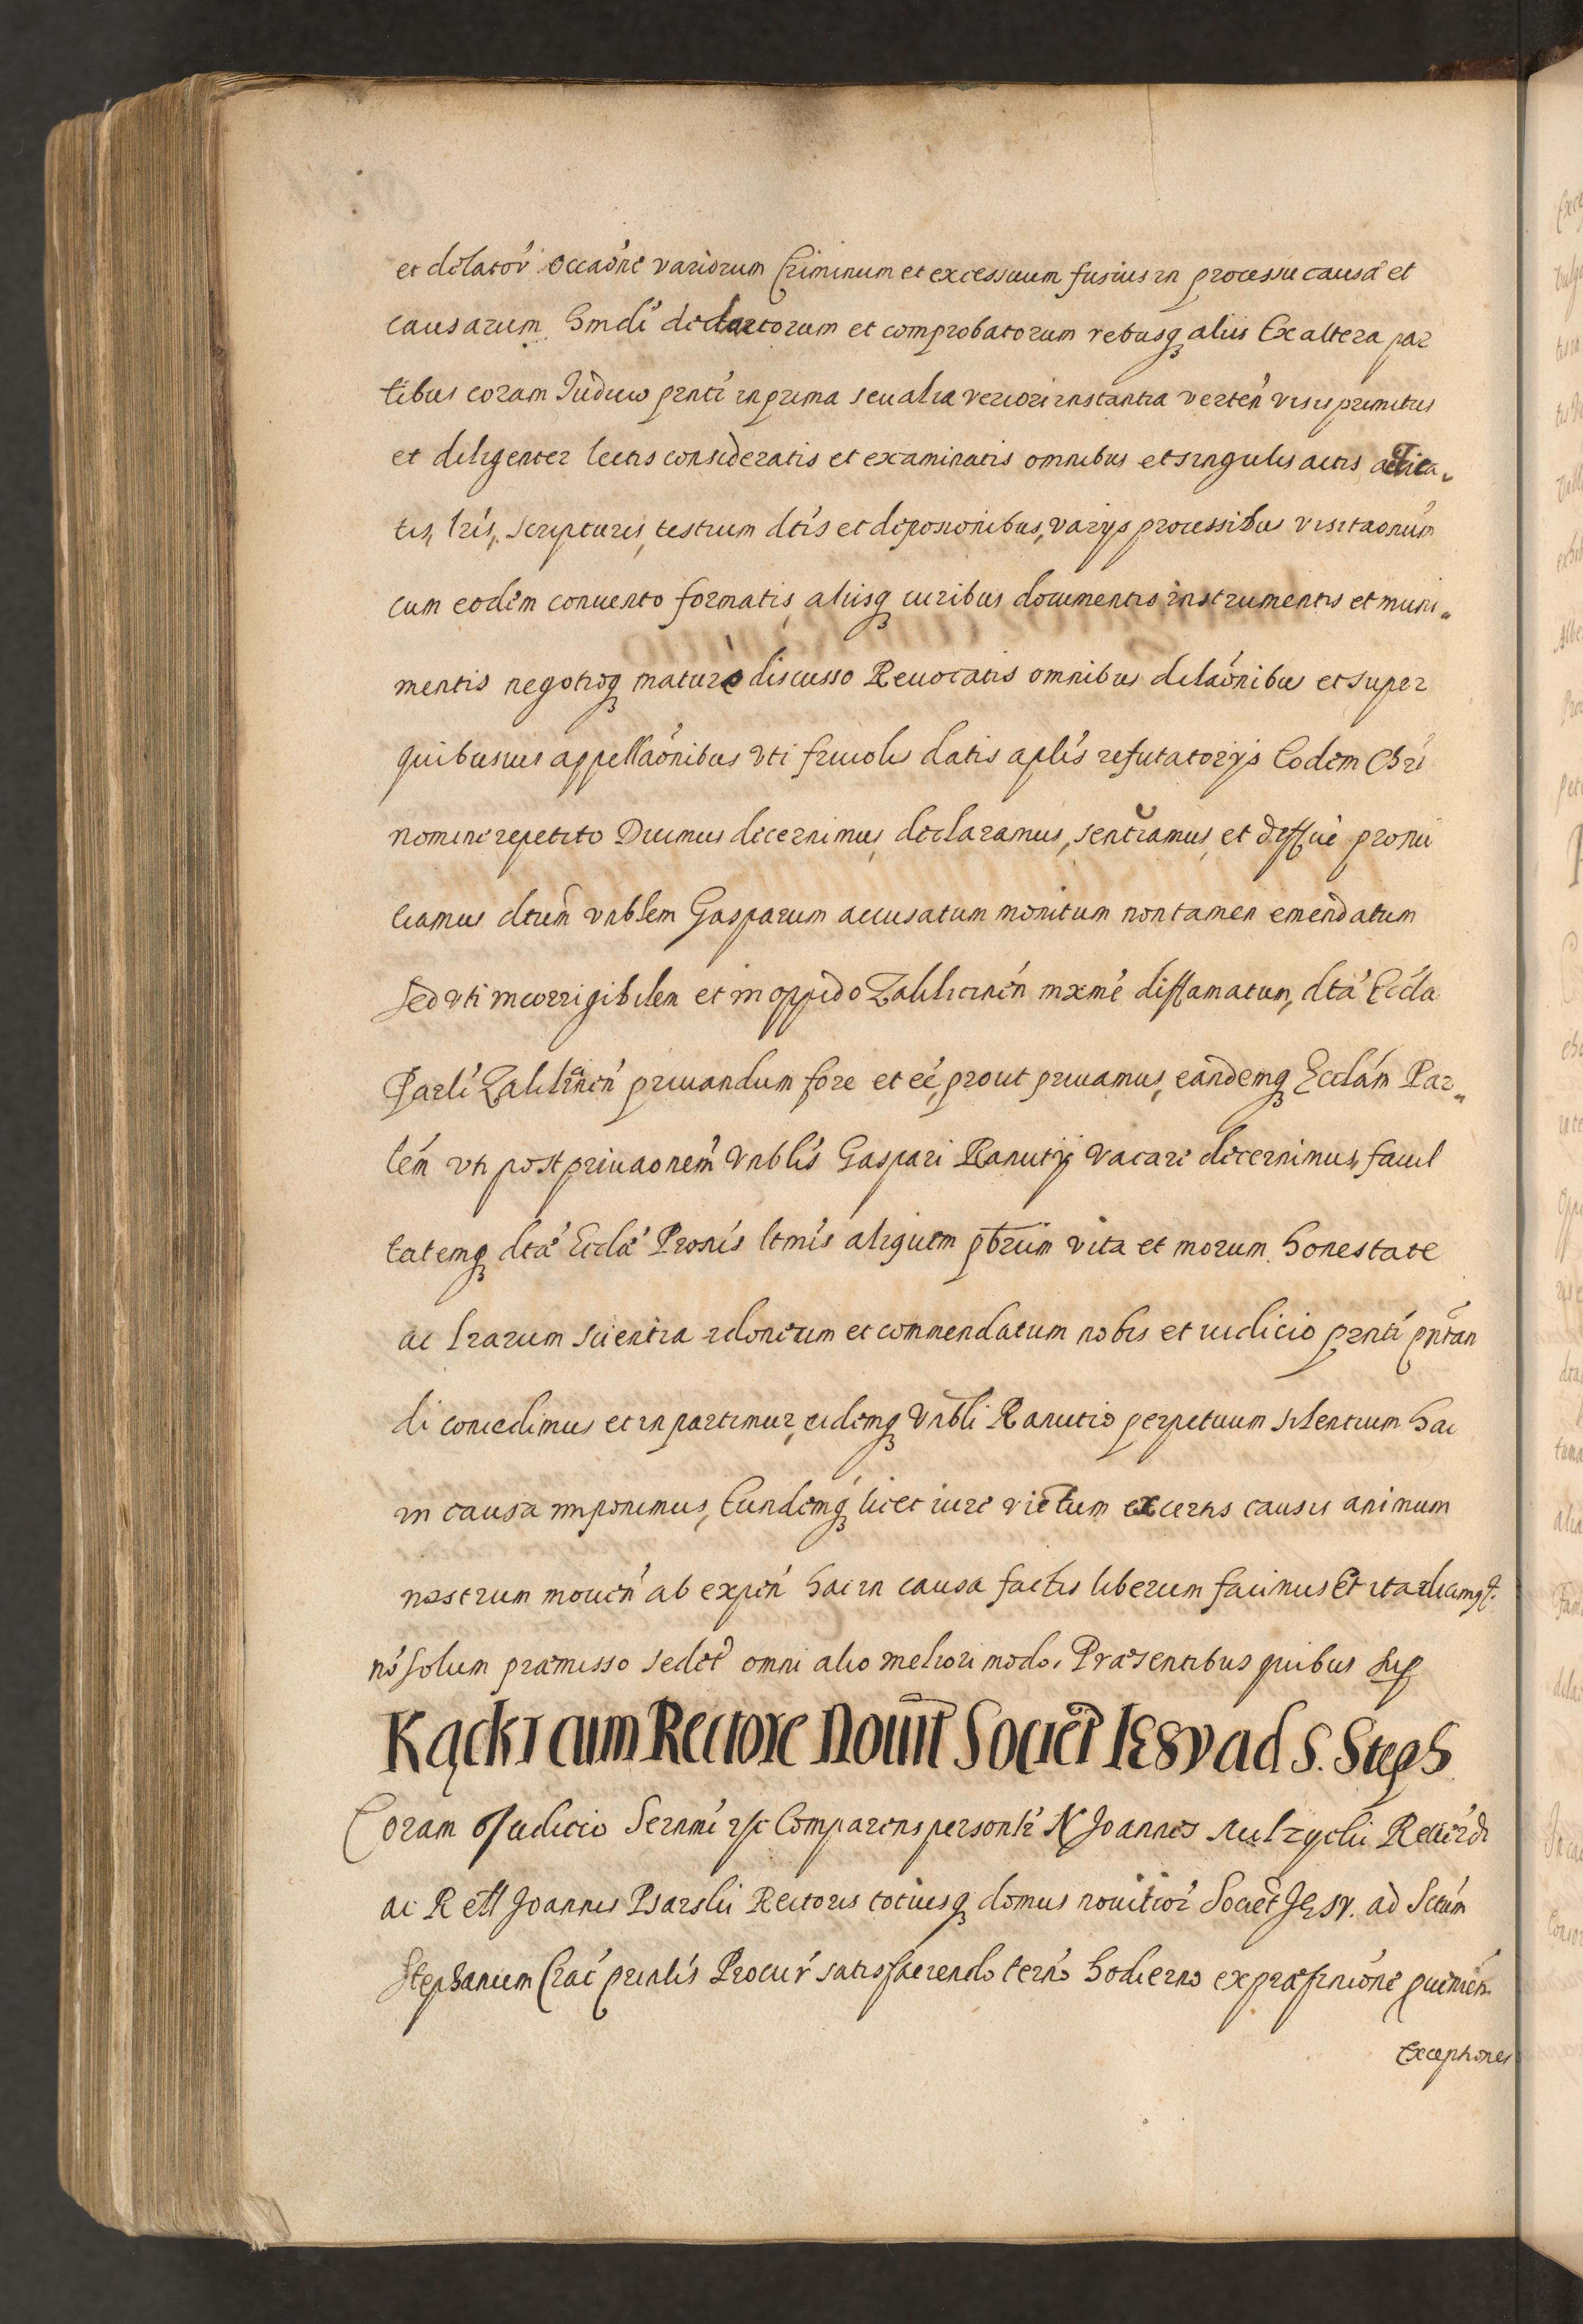 et delator̄ occaōne variorum Criminum et excessuum fusius in processu causæ et
causarum hmdi deductorum et comprobatorum rebusq̨ aliis Ex altera par
tibus coram Iudicio pr̄nti in prima seu alia veriori instantia verteń visis primitus
et diligenter lectis consideratis et examinatis omnibus et singulis actis actica„
tis, lrís, scripturis, testium dtís et deposionibus, varijs processibus visitaonúm
cum eodém conuento formatis, aliisq̨ iuribus documentis instrumentis et muni„
mentis negotioq̨ maturè discusso Reuocatis omnibus delaónibus et super
quibusuis appellaónibus vti friuolis datis aplís refutatorijs Eodem Chrí
nomine repetito Dicimus decernimus, declaramus, sentīamus, et diffué pronū
ciamus dtum̄ vnblem Gasparum accusatum monitum non tamen emendatum
sed vti incorrigibilem et in oppido Zalilicineń mxmé diffamatum, dtá Ecćla
Parlí Zalilineń priuandum fore et eé, prout priuamus, eandemq̨ Ecclám Par„
lém vti post priuaonem̄ vnblís Gaspari Ranutij vacare decernimus, facul
tatemq̨ dtæ Eclæ Pronís ltmís aliquem pb̄rum vita et morum honestate
ac lrarum scientia idoneum et commendatum nobis et iudicio prntí pn̄tan
di concedimus et in partimur, eidemq̨ vnbli Ranutio perpetuum silentium hac
in causa imponimus, Eundemq̨ licet iure victum ex certis causis animum
nostrum mouéń ab expéń hac in causa factis liberum facimus Et ita dicimq̨
nó solum præmisso sed et omni alio meliori modo. Præsentibus quibus sup̱
Kącki cum Rectore Nouit̄ Societ̄ IESV ad S. Steph
Coram Judicio Sernmí Comparens personlr̄ N Joannes Rectoŕ
ac R Joannis Psarski Rectoris totiusq̨ domus nouitior̄ Societ̄ JESV. ad Sctúm
Stephanum Crać prinlís Procur̄ satisfaciendo terńo hodierno ex præfinióne
Exceptiones